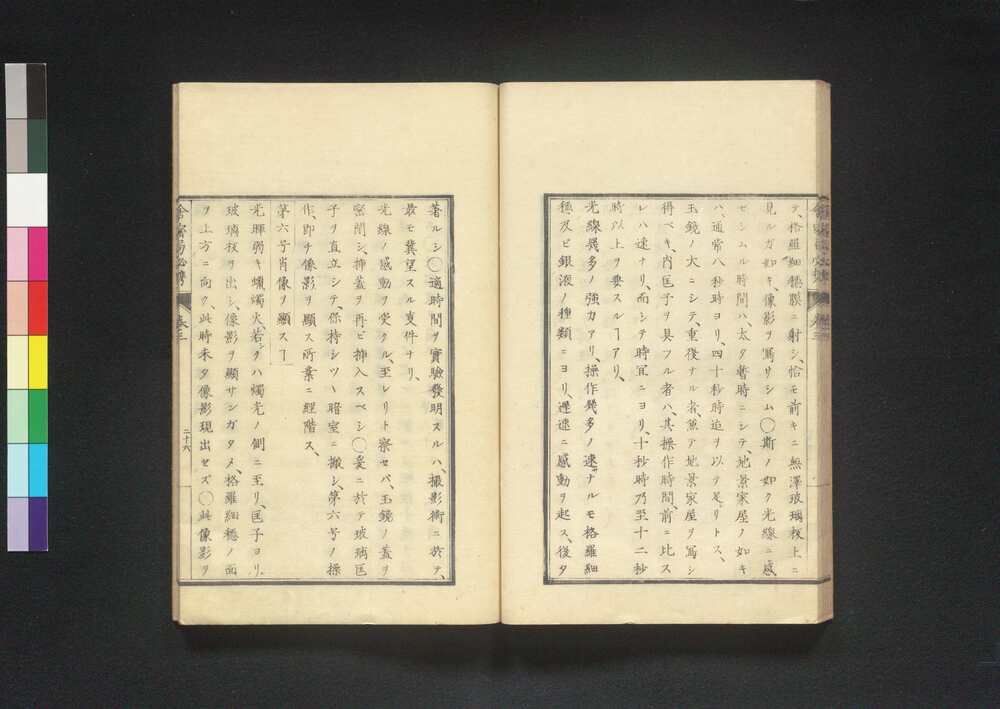 テ、格羅細穏膜ニ射シ、恰モ前キニ無澤玻璃板上ニ
見ルガ如キ、像影ヲ寫サシム〇斯ノ如ク光線ニ感
ゼシムル時間ハ、太タ暫時ニシテ、地景家屋ノ如キ
ハ、通常八秒時ヨリ、四十秒時迄ヲ以テ足リトス、
玉鏡ノ大ニシテ、重複ナル者、兼ア地景家屋ヲ寫シ
得ベキ、内匡子ヲ具フル者ハ、其操作時間、前ニ比ス
レハ速ナリ、而シテ時宜ニヨリ、十秒時乃至十二秒
時以上ヲ要スルヿアリ、
光線幾多ノ強力アリ、操作幾多ノ速ナルモ格羅細
穏及ビ銀液ノ種類ニヨリ、遅速ニ感動ヲ起ス、後タ
著ルシ〇適時間ヲ實驗發明スルハ、撮影術ニ於テ、
最モ冀望スル事件ナリ、
光線ノ感動ヲ受クル、至レリト察セバ、玉鏡ノ蓋ヲ
密閉シ、挿蓋ヲ再ビ挿入スベシ〇爰ニ於テ玻璃匡
子ヲ直立シテ、保持シツヽ暗室ニ搬シ、第六号ノ操
作、即チ像影ヲ顯ス所業ニ經階ス、
第六号肖像ヲ顯スヿ
光輝弱キ蠟燭火、若クハ燭光ノ側ニ至リ、匡子ヨリ、
玻璃板ヲ出シ、像影ヲ顯サンガタメ、格羅細穏ノ面
ヲ上方ニ向ク、此時未タ像影現出セズ〇此像影ヲ
舎密局必携 巻三 二十六